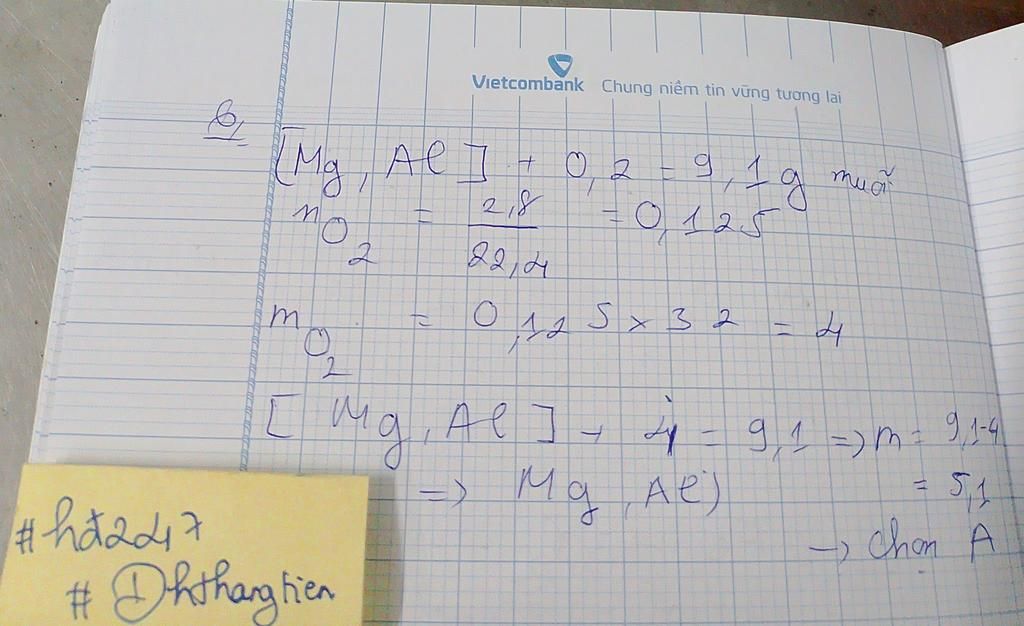 Vietcombank Chung niềm tin vững tương lai
6,
[Mg, Al] + O, 2 = 9, 1g muối
nO2 = 2,8/22,4 = 0,125
mO2 = 0,125 x 32 = 4
[Mg, Al] + 4 = 9,1 => m = 9,1-4
=> Mg, Al) = 5,1
→ chọn A
#hđ247
# Dhthangtien